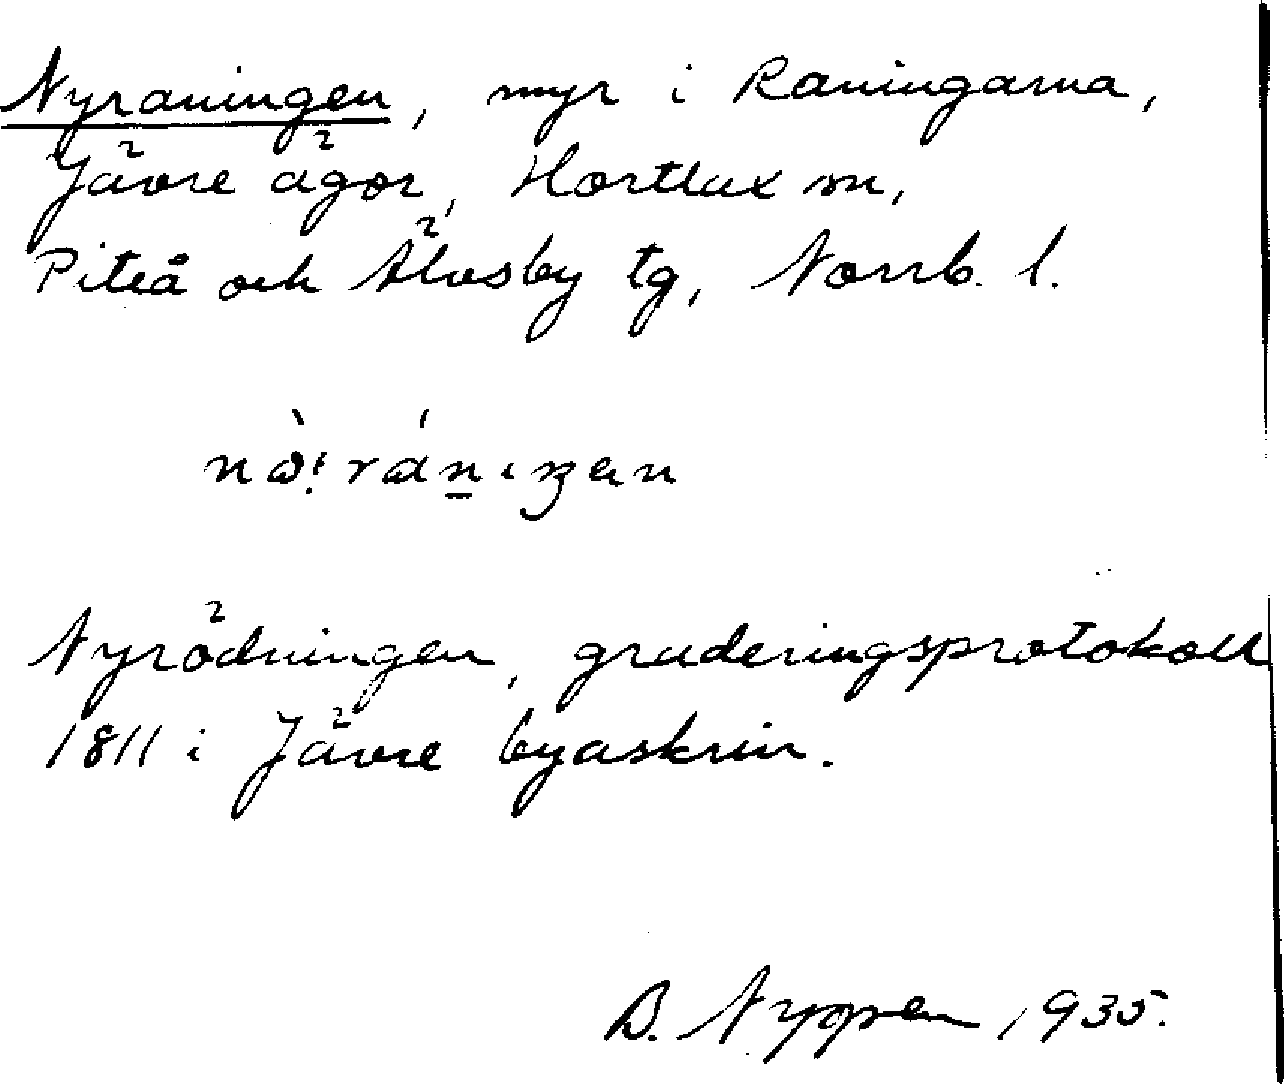 Nyraningen, myr i Raningarna,
Jävre ägor, Hortlax sn,
Piteå och Älvsby tg, Norrb. l.
Nyrödningen, graderingsprotokoll
1811 i Jävre byaskrin.
B. Nygren 1935.